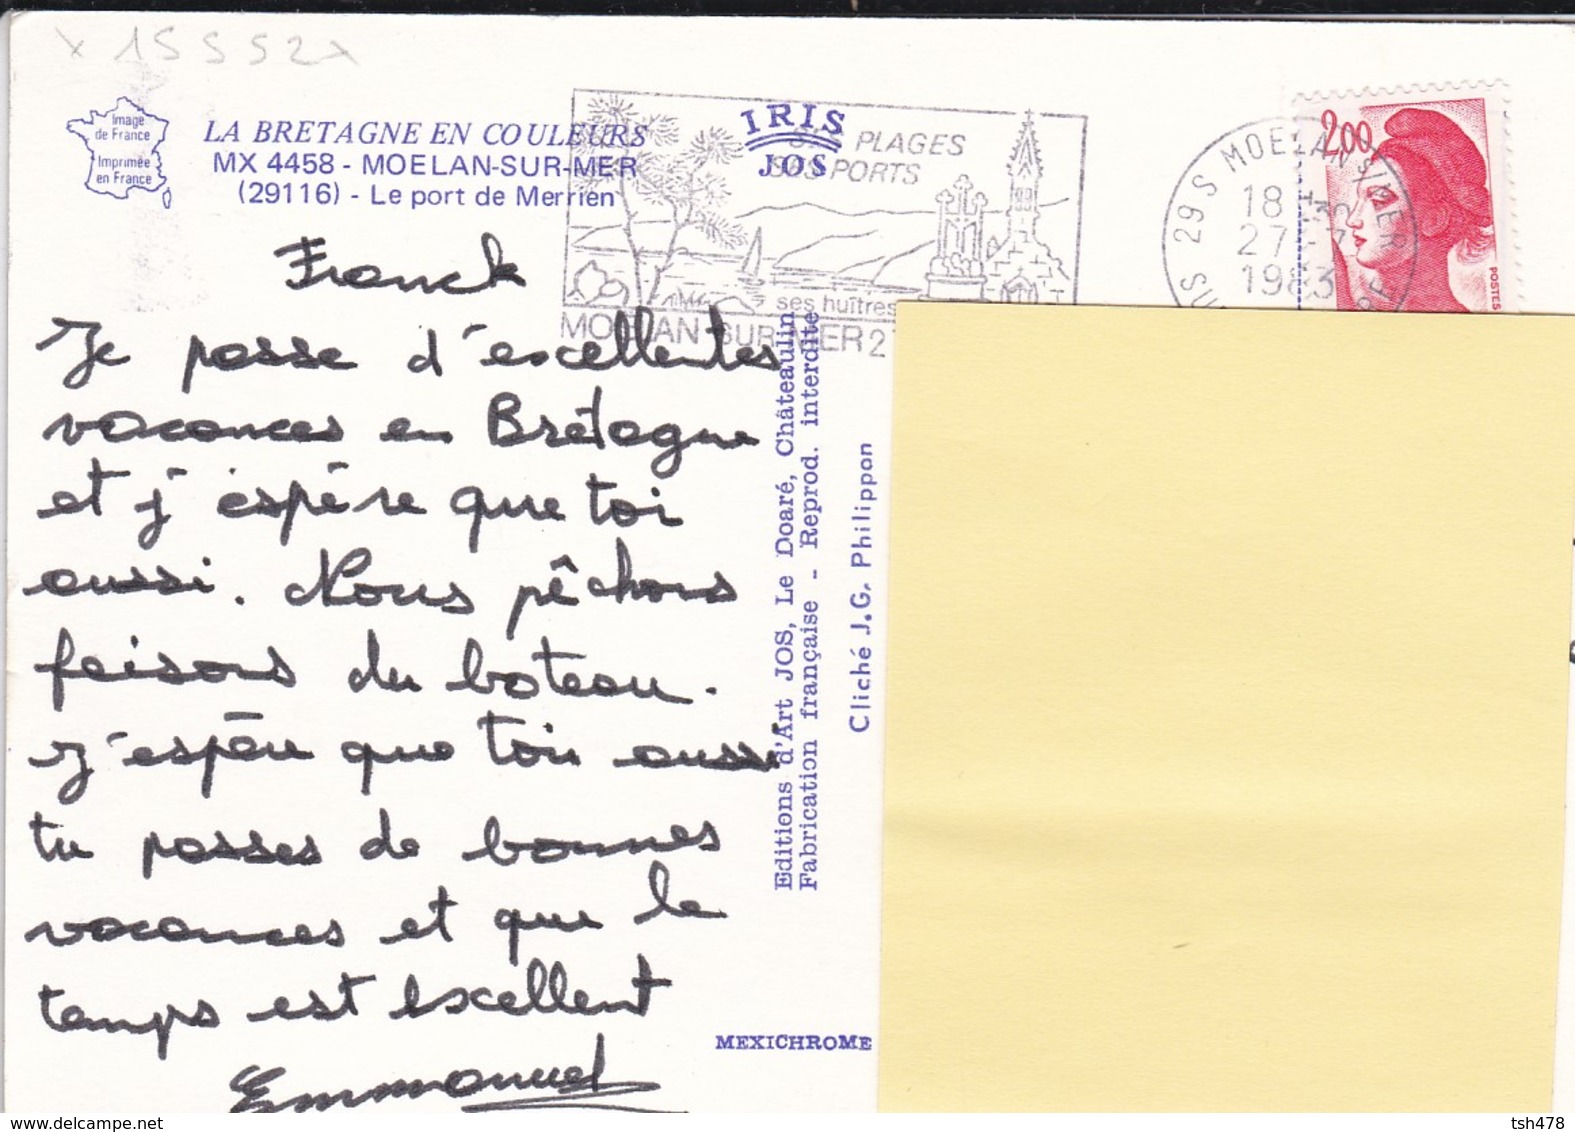 x 15552x
Image
de France
Imprimée
en France
LA BRETAGNE EN COULEURS
MX 4458 - MOELAN-SUR-MER
(29116) - Le port de Merrien
IRIS
JOS
SES PLAGES
SES PORTS
ses huîtres
MOELAN SUR MER 2
29 S MOELAN S/MER
18 H
27-7
1983
2,00
POSTES
Franck
Je passe d'excellentes
vacances en Bretagne
et j'espère que toi
aussi. Nous pêchons
faisons du bateau.
J'espère que toi aussi
tu passes de bonnes
vacances et que le
temps est excellent
Emmanuel
Editions d'Art JOS, Le Doaré, Châteaulin
Fabrication française - Reprod. interdite
Cliché J.G. Philippon
MEXICHROME
www.delcampe.net
tsh478